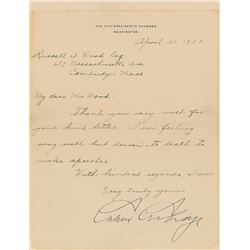 THE VICE-PRESIDENT'S CHAMBER,
WASHINGTON.
April 20 1922
Russell A. Wood Esq
Massachusetts Ave
Cambridge Mass
My dear Mr. Wood:
Thank you very much for
your kind letter. I am feeling
very well but have to
make speeches.
With kindest regards, I am
Very truly yours
Calvin Coolidge